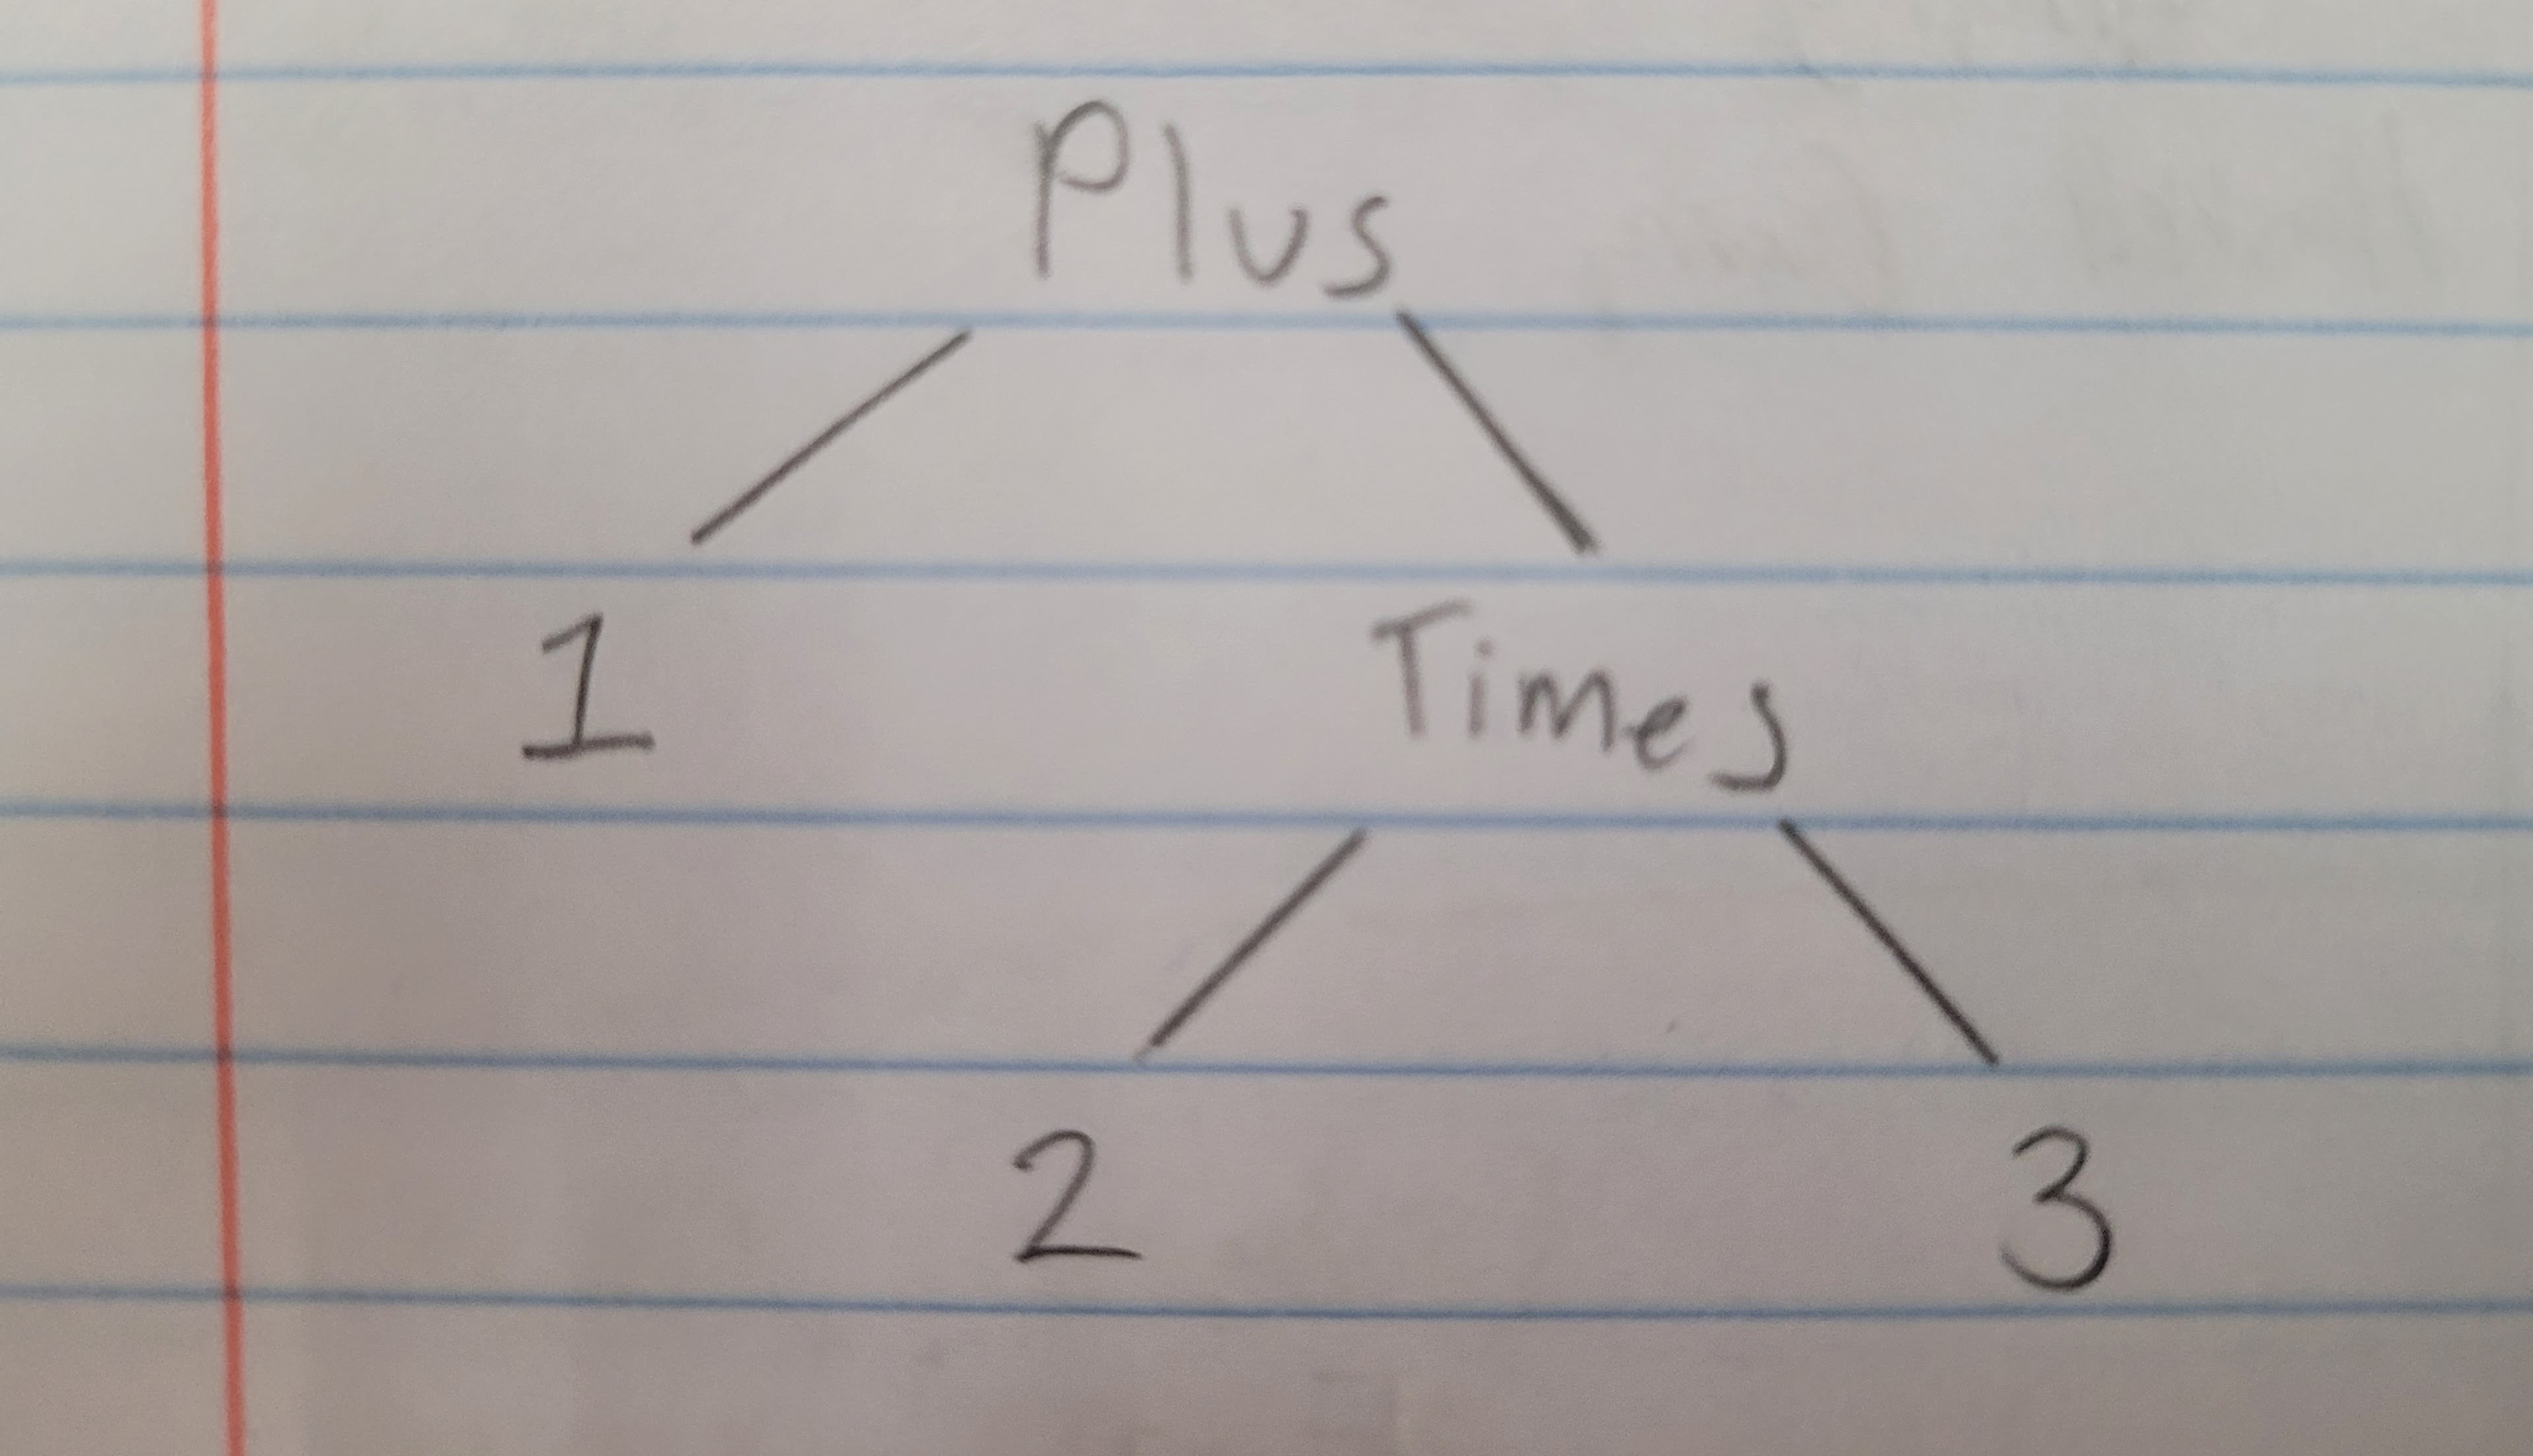 Plus
1 Times
2 3